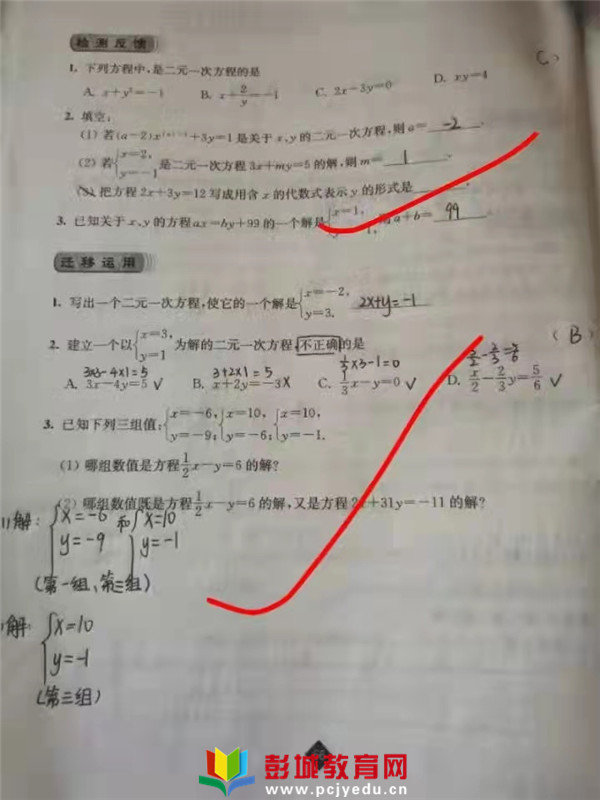 检测反馈
1. 下列方程中,是二元一次方程的是 (C)
A. x+y²=-1 B. x+2/y=-1 C. 2x-3y=0 D. xy=4
2. 填空:
(1) 若(a-2)x^|a|-1+3y=1是关于x,y的二元一次方程,则a= -2 .
(2) 若{x=2, y=-1 是二元一次方程3x+my=5的解,则m= 1 .
(3) 把方程2x+3y=12写成用含x的代数式表示y的形式是
3. 已知关于x、y的方程ax=by+99的一个解是{x=1, 则a+b= 99 .
迁移运用
1. 写出一个二元一次方程,使它的一个解是{x=-2, y=3. 2x+y=-1
2. 建立一个以{x=3, y=1 为解的二元一次方程,不正确的是 (B)
3x3-4x1=5 3+2x1=5 1/3x3-1=0 3/2-2/3=5/6
A. 3x-4y=5 ✓ B. x+2y=-3 X C. 1/3x-y=0 ✓ D. x/2-2/3y=5/6 ✓
3. 已知下列三组值:{x=-6, y=-9; {x=10, y=-6; {x=10, y=-1.
(1) 哪组数值是方程1/2x-y=6的解?
(2) 哪组数值既是方程1/2x-y=6的解,又是方程2x+31y=-11的解?
1)解: {x=-6 y=-9 和 {x=10 y=-1
(第一组、第三组)
解: {x=10 y=-1
(第三组)
彭城教育网
www.pcjyedu.cn